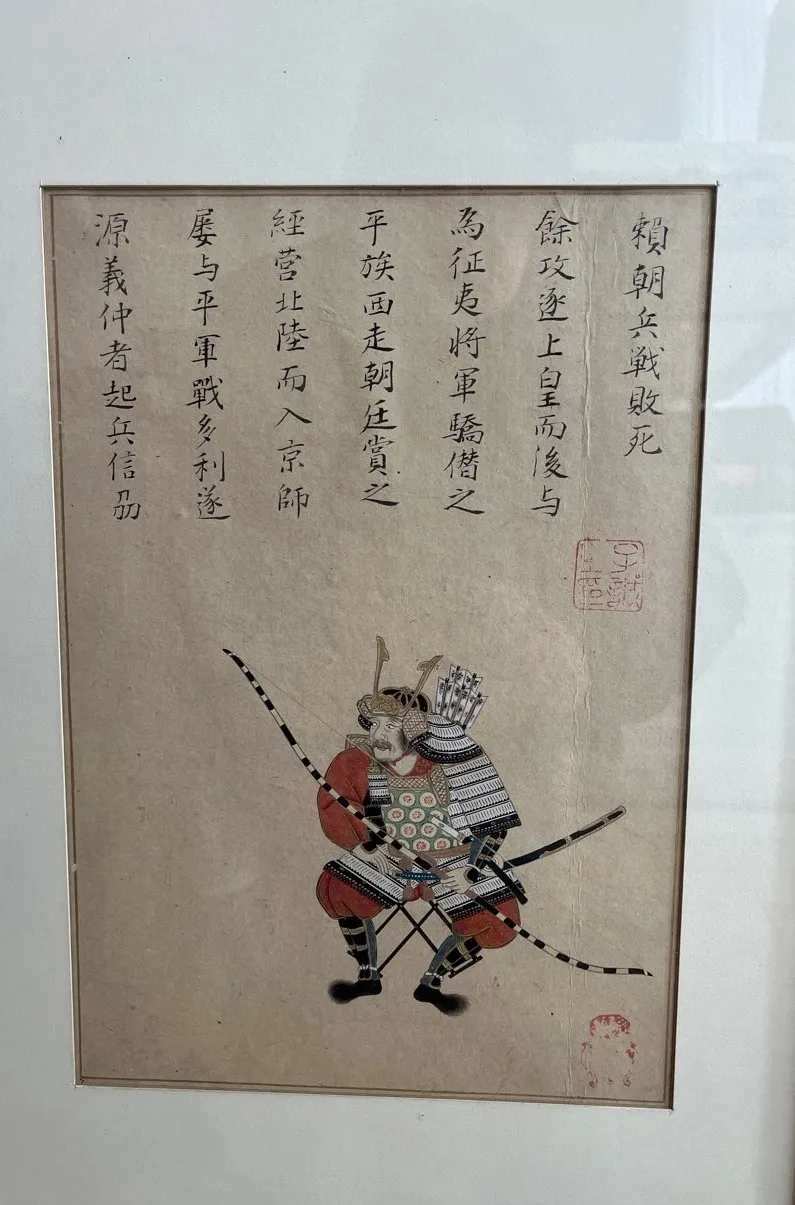 源義仲者起兵信刕
屡与平軍戰多利遂
經営北陸而入京師
平族西走朝廷賞之
為征夷将軍驕僣之
餘攻逐上皇而後与
賴朝兵戦敗死